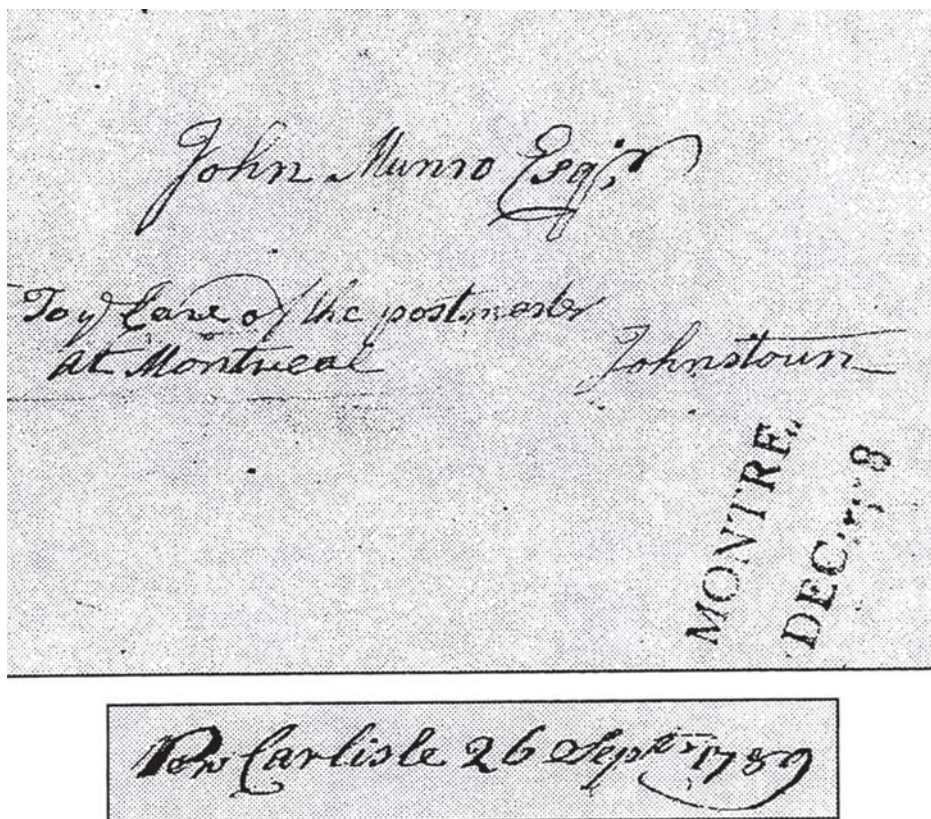 John Munro Esqr
To ye Care of the postmaster
at Montreal
Johnstown
MONTRE
DEC 8
Carlisle 26 Septr 1789